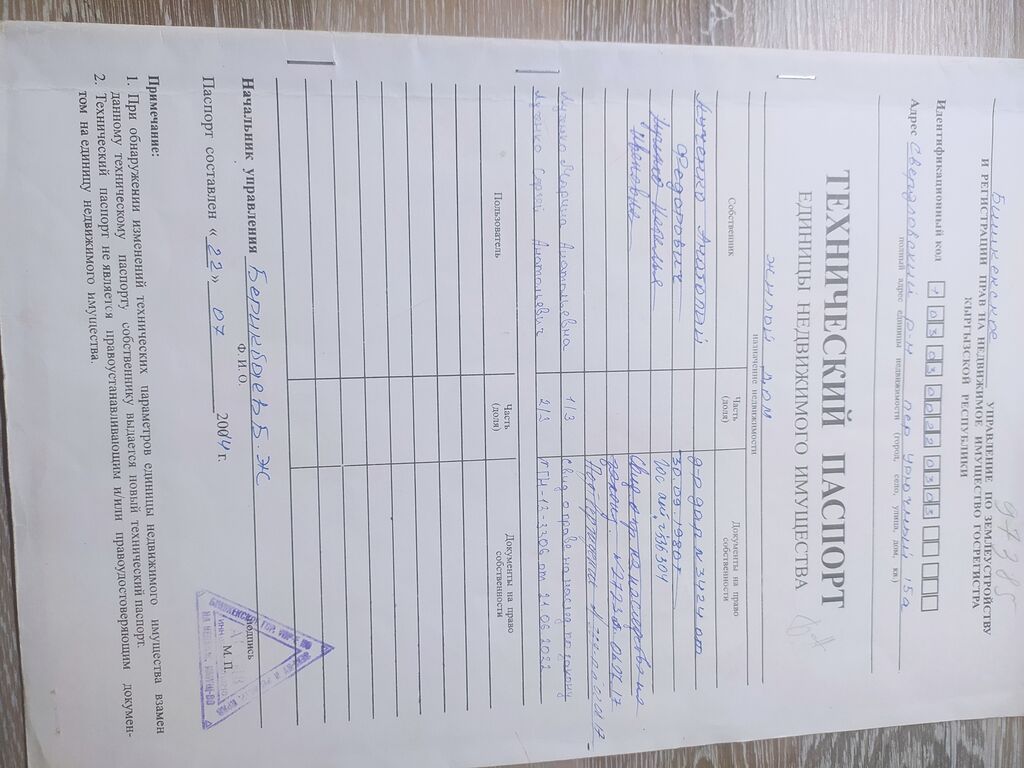 97385
Бишкекское УПРАВЛЕНИЕ ПО ЗЕМЛЕУСТРОЙСТВУ
И РЕГИСТРАЦИИ ПРАВ НА НЕДВИЖИМОЕ ИМУЩЕСТВО ГОСРЕГИСТРА
КЫРГЫЗСКОЙ РЕСПУБЛИКИ
Идентификационный код 1 03 03 0022 0303
Адрес Свердловский р-н пер. Уютный 15а
полный адрес единицы недвижимости (город, село, улица, дом, кв.)
ТЕХНИЧЕСКИЙ ПАСПОРТ
ЕДИНИЦЫ НЕДВИЖИМОГО ИМУЩЕСТВА
жилой дом
назначение недвижимости
Собственник Часть (доля) Документы на право собственности
Луценко Анатолий д-р дар №3424 от
Федорович 30.09.1980г
Наталья
Ивановна
Анатольевна 1/3 Свид о праве на наслед по закону
Луценко Сергей Анатольевич 2/3 от 21.06.2022
Пользователь Часть (доля) Документы на право собственности
Начальник управления Берикбаев Б. Ж.
Ф.И.О. подпись
М.П.
Паспорт составлен «22» 07 2004 г.
Примечание:
1. При обнаружении изменений технических параметров единицы недвижимого имущества взамен
данному техническому паспорту собственнику выдается новый технический паспорт.
2. Технический паспорт не является правоустанавливающим и/или правоудостоверяющим докумен-
том на единицу недвижимого имущества.